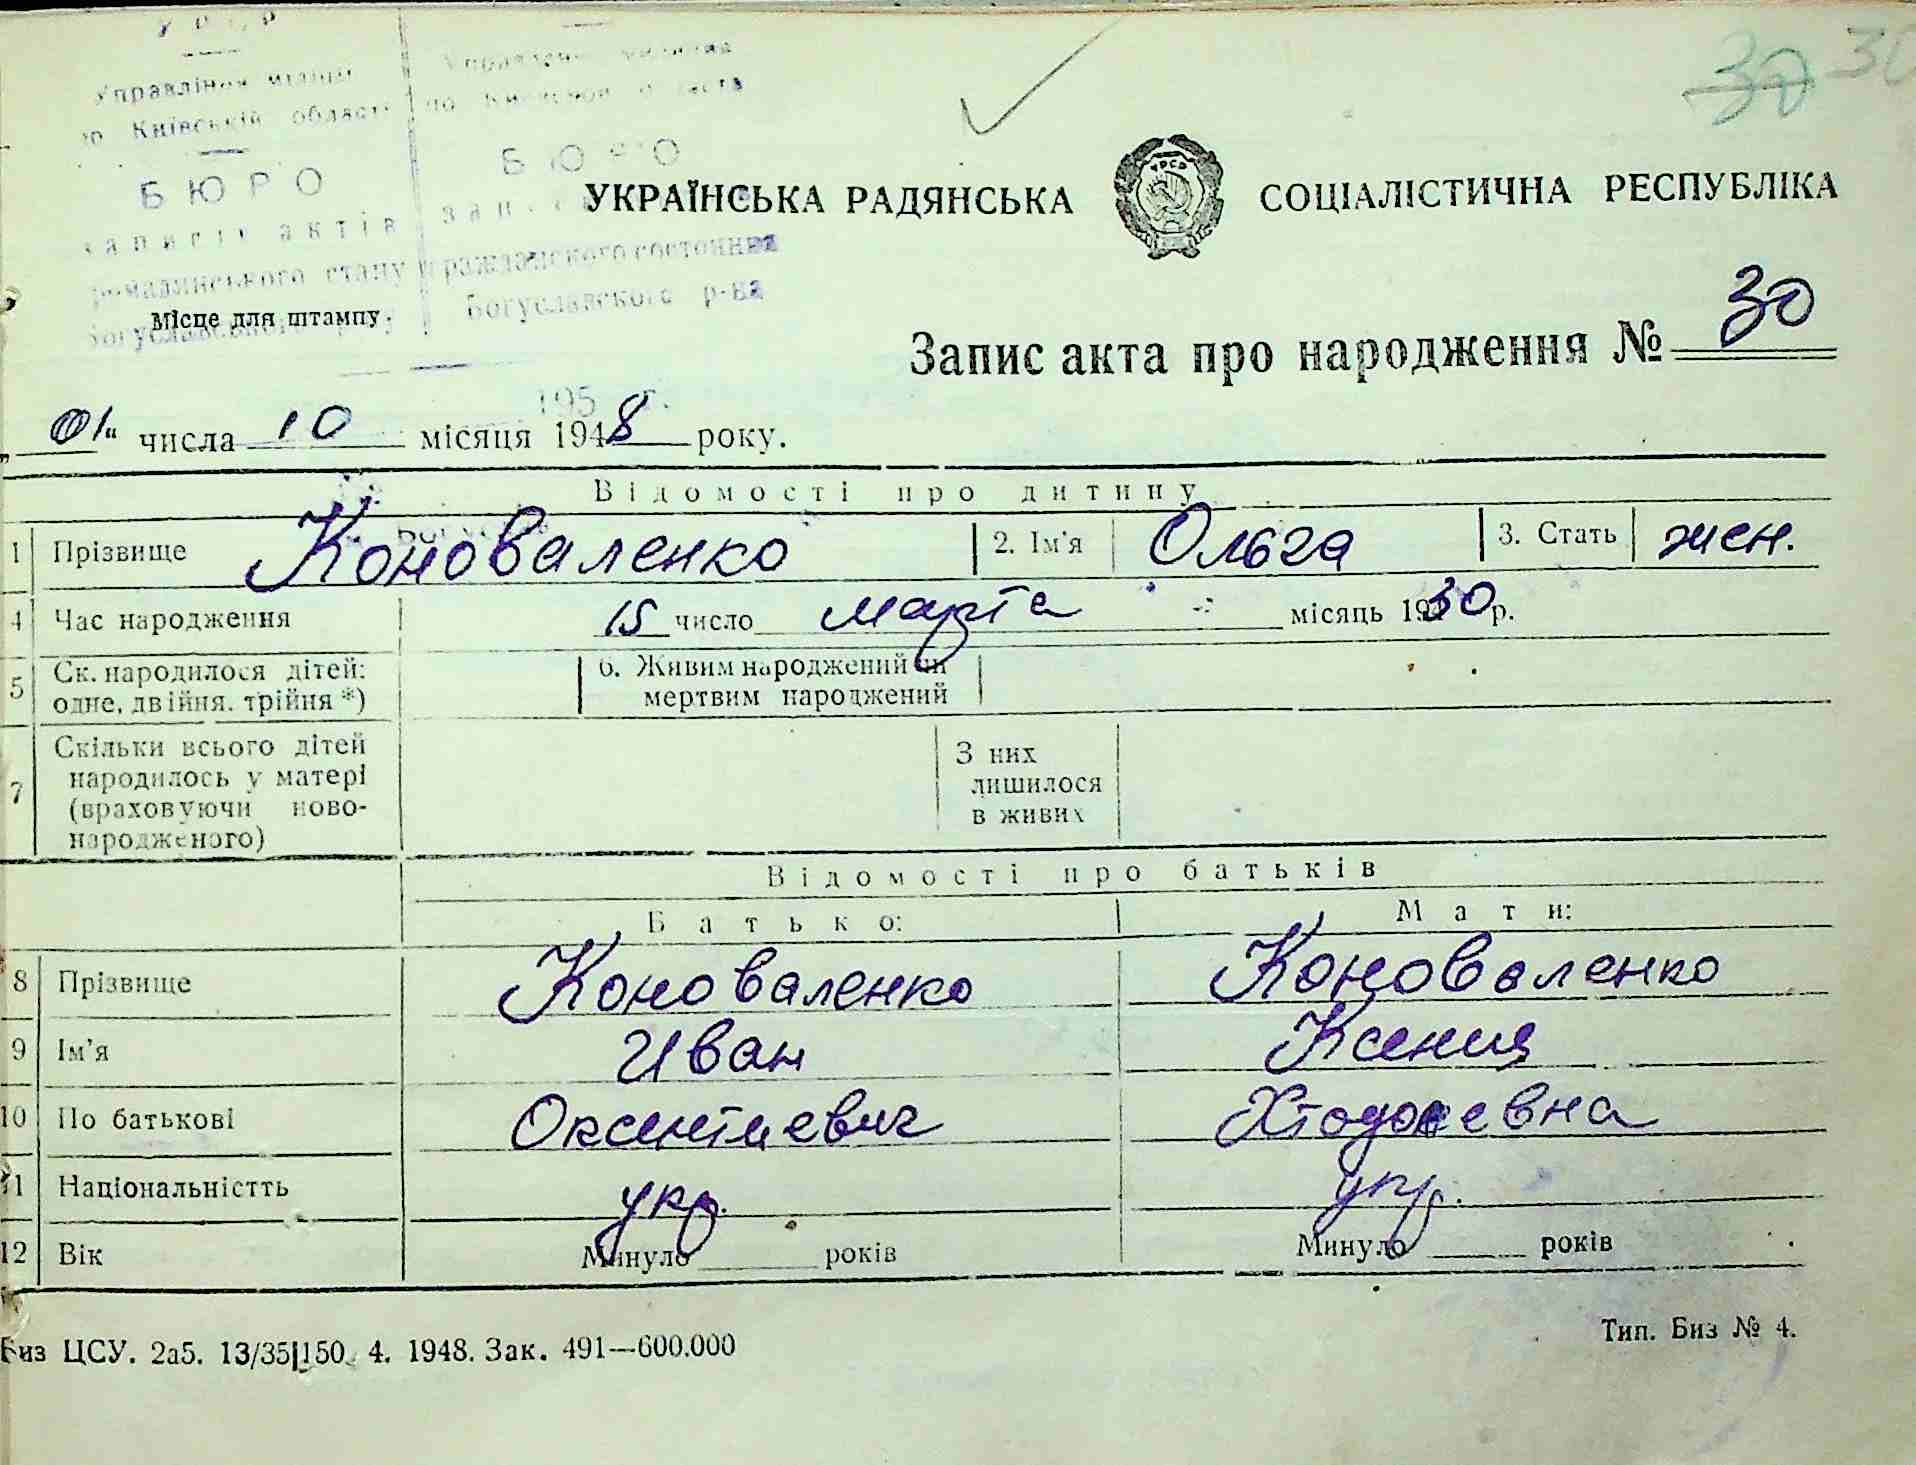 30 30
Управління міліції
по Київській області
БЮРО
записів актів
громадянського стану
Богуславського р-ну
Управление милиции
по Киевской области
БЮРО
гражданского состояния
Богуславского р-на
Місце для штампу.
195 г.
УКРАЇНСЬКА РАДЯНСЬКА СОЦІАЛІСТИЧНА РЕСПУБЛІКА
УРСР
Запис акта про народження № 30
„01“ числа 10 місяця 1948 року.
Відомості про дитину
1 Прізвище Коноваленко 2. Ім'я Ольга 3. Стать жен.
4 Час народження 15 число марта місяць 1930 р.
5 Ск. народилося дітей: 6. Живим народжений чи
одне, двійня, трійня *) мертвим народжений
7 Скільки всього дітей З них
народилось у матері лишилося
(враховуючи ново- в живих
народженого)
Відомості про батьків
Батько: Мати:
8 Прізвище Коноваленко Коноваленко
9 Ім'я Иван Ксения
10 По батькові Оксентиевич
11 Національністть укр. укр.
12 Вік Минуло ____ років Минуло ____ років
Биз ЦСУ. 2а5. 13/35|150. 4. 1948. Зак. 491—600.000 Тип. Биз № 4.